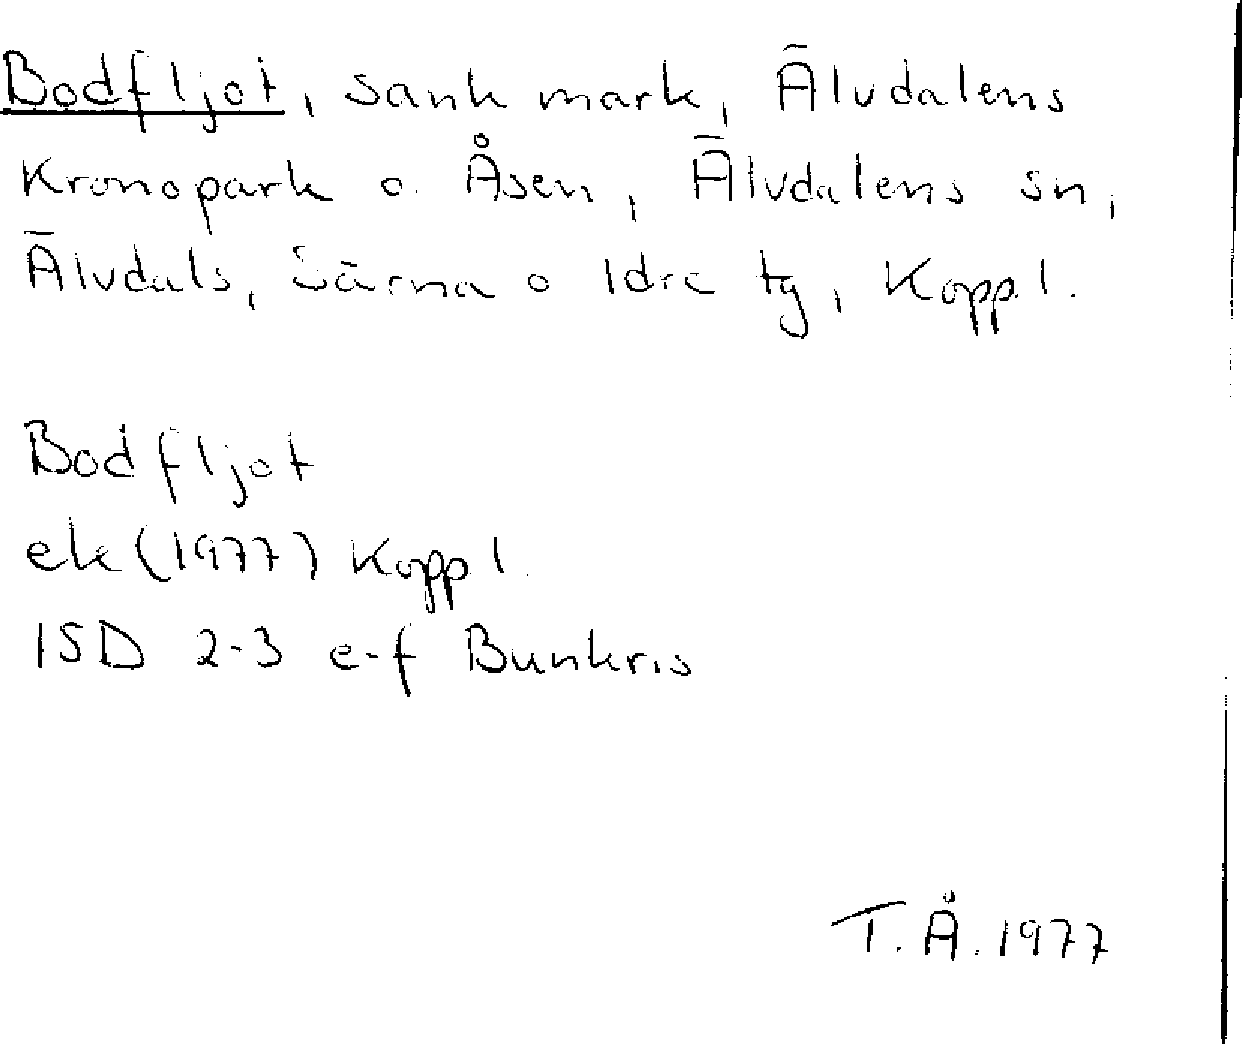 Bodfljot, sank mark, Älvdalens
Kronopark o. Åsen, Älvdalens sn,
Älvdals, Särna o Idre tg, Koppl.
Bodfljot
ek (1977) Koppl.
15D 2-3 e-f Bunkris
T.Å. 1977